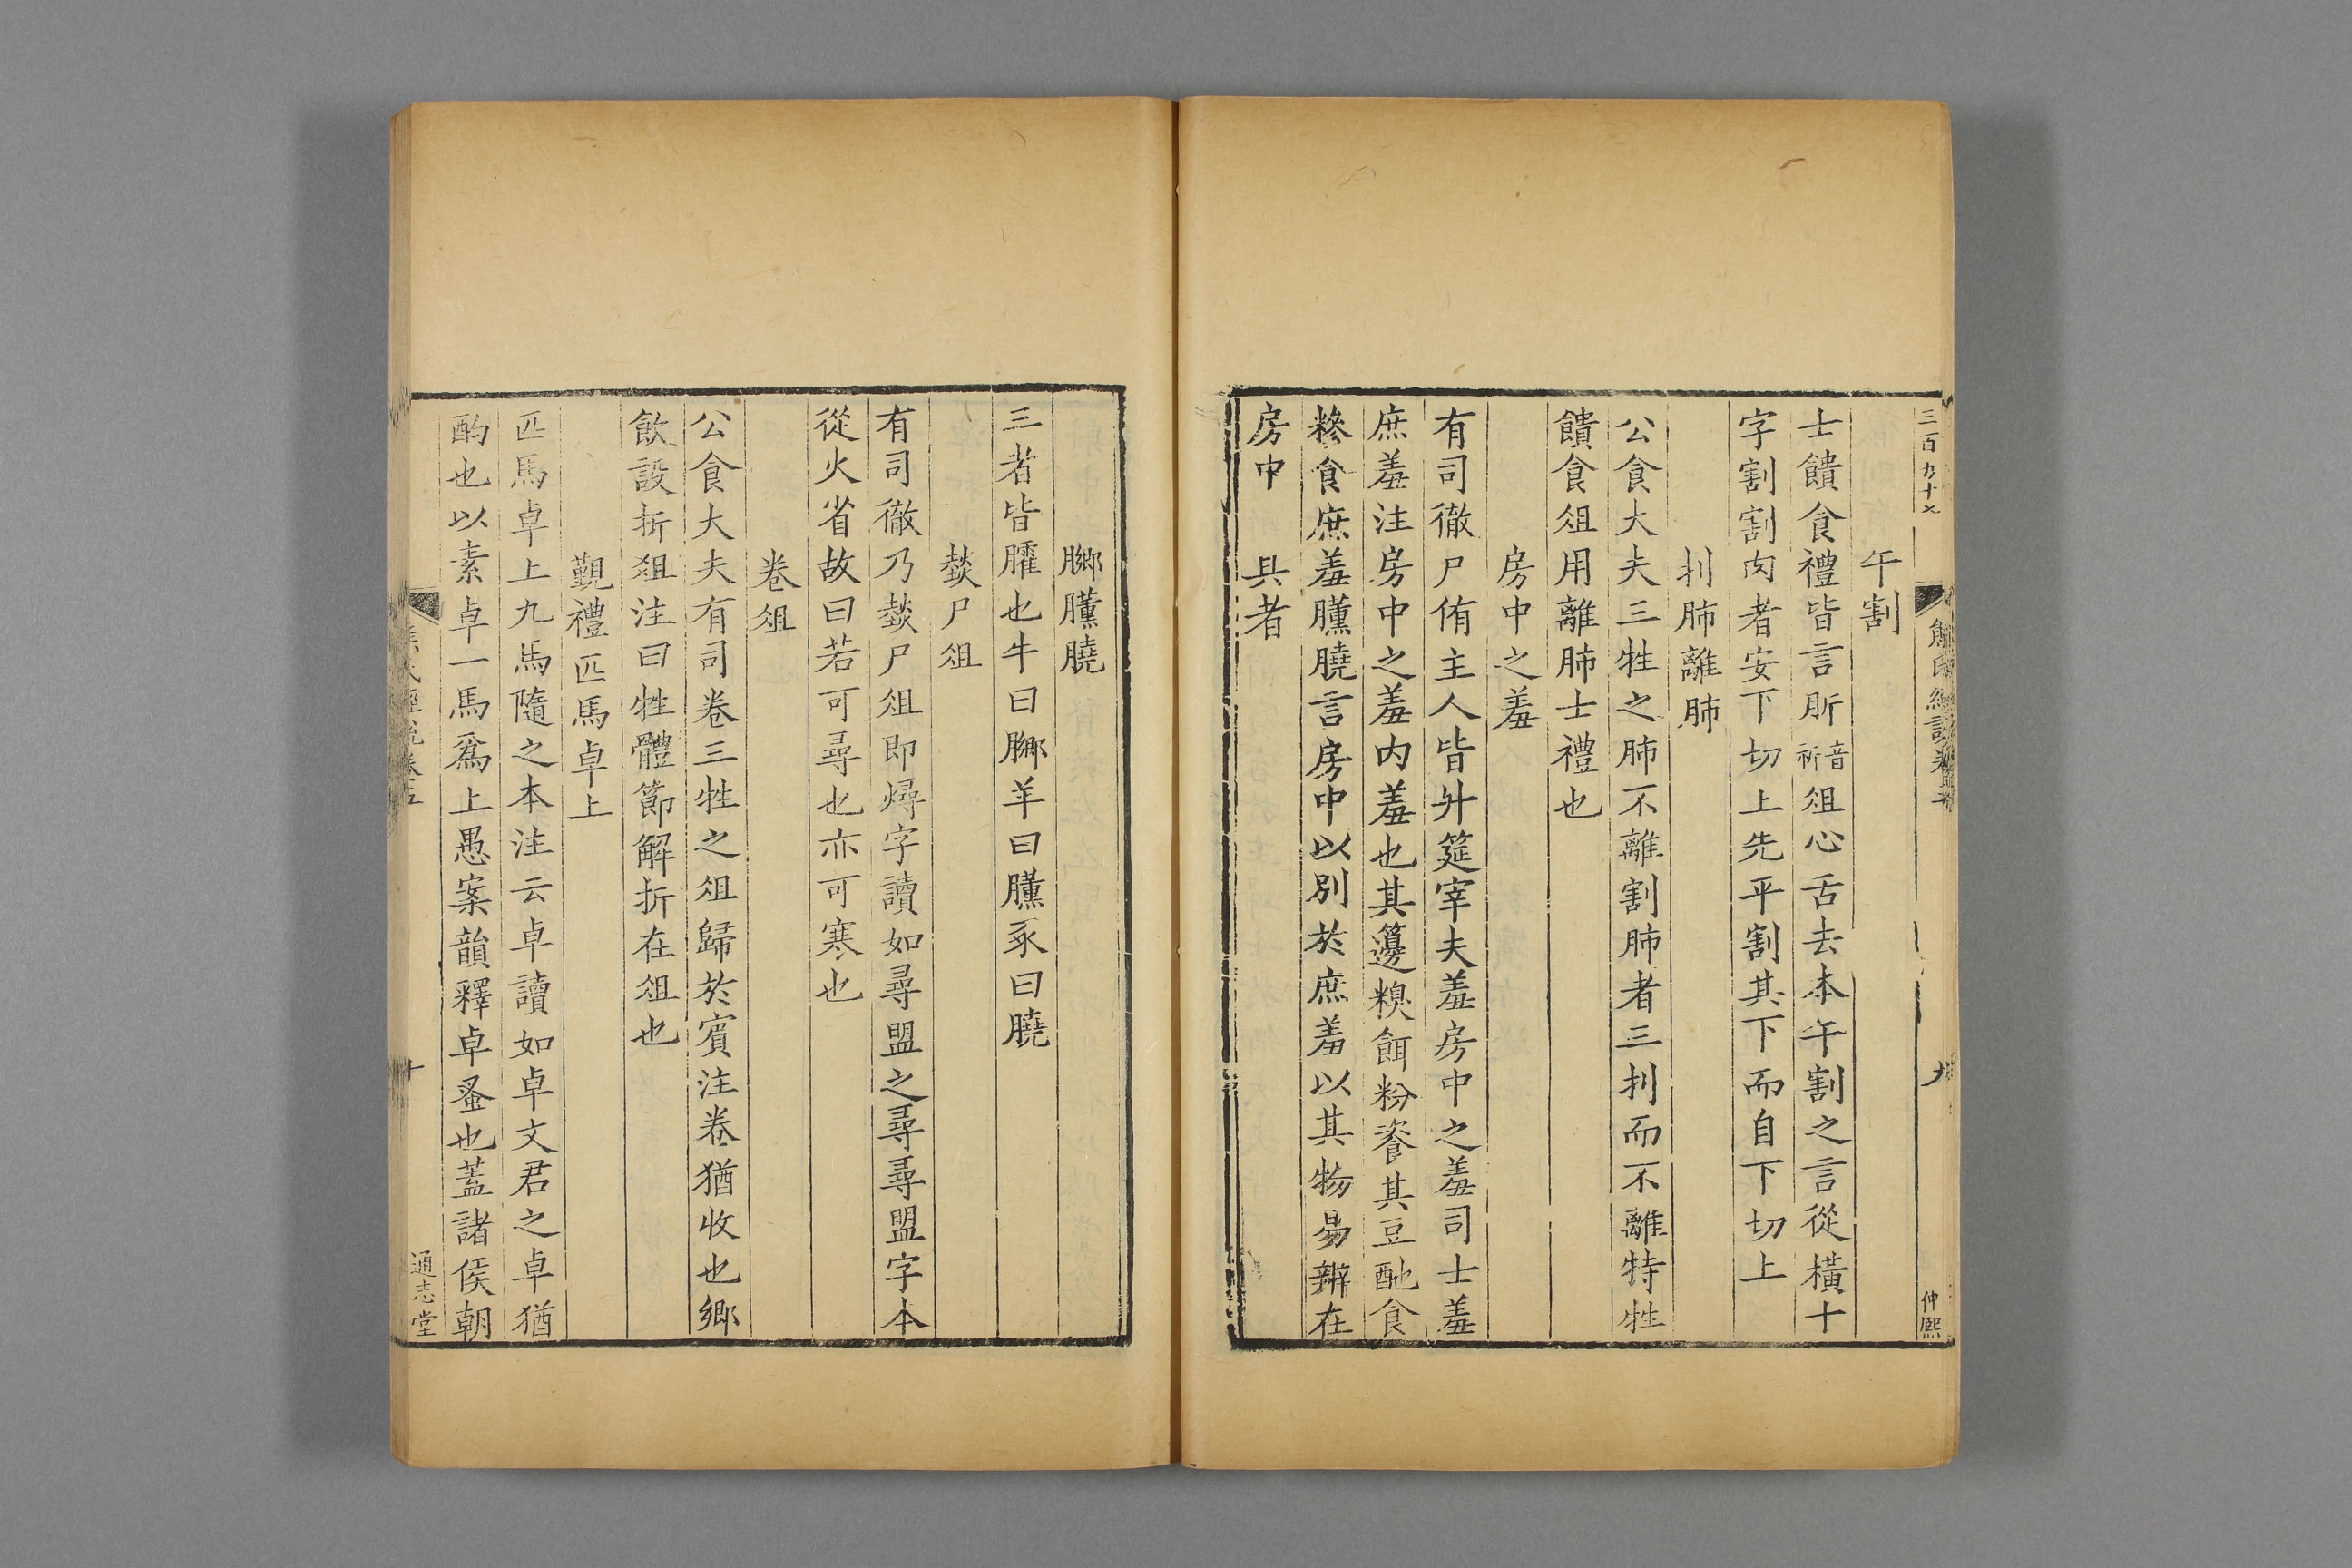 三百九十七
熊氏經說卷五
九
仲熙
午割
士饋食禮皆言肵音祈俎心舌去本午割之言從橫十
字割割肉者安下切上先平割其下而自下切上
刌肺離肺
公食大夫三牲之肺不離割肺者三刌而不離特牲
饋食俎用離肺士禮也
房中之羞
有司徹尸侑主人皆升筵宰夫羞房中之羞司士羞
庶羞注房中之羞內羞也其籩糗餌粉餈其豆酏食
糝食庶羞臐膮言房中以別於庶羞以其物易辨在
房中 具者
膷臐膮
三者皆臛也牛曰膷羊曰臐豕曰膮
燅尸俎
有司徹乃燅尸俎即燖字讀如尋盟之尋尋盟字本
從火省故曰若可尋也亦可寒也
卷俎
公食大夫有司卷三牲之俎歸於賓注卷猶收也鄉
飲設折俎注曰牲體節解折在俎也
覲禮匹馬卓上
匹馬卓上九馬隨之本注云卓讀如卓文君之卓猶
酌也以素卓一馬爲上愚案韻釋卓蚤也蓋諸侯朝
熊氏經說卷五
十
通志堂